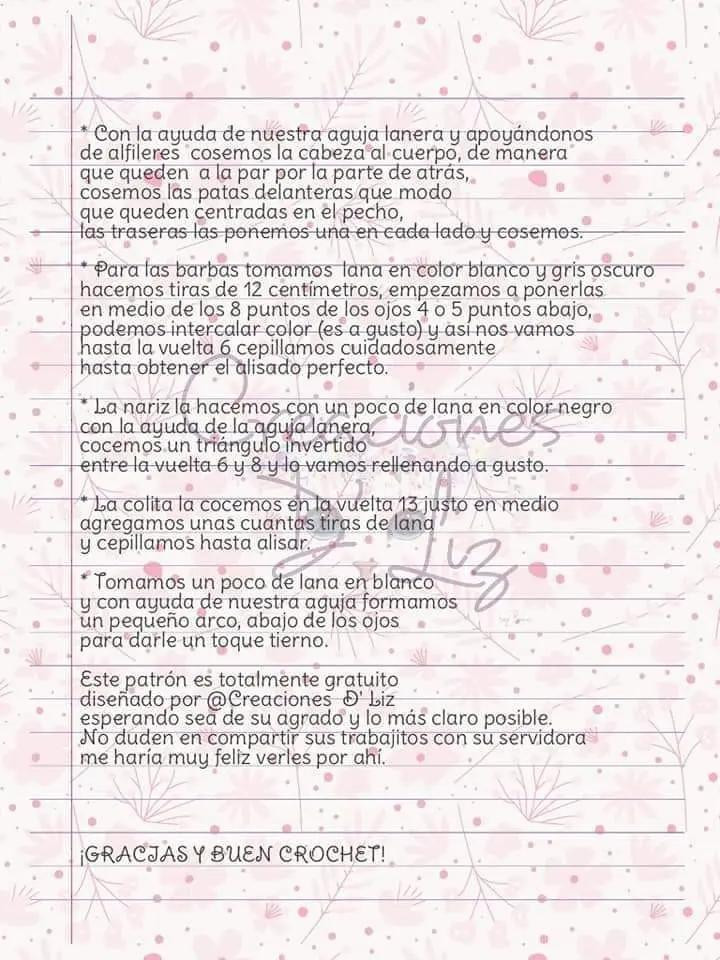 * Con la ayuda de nuestra aguja lanera y apoyándonos
de alfileres cosemos la cabeza al cuerpo, de manera
que queden a la par por la parte de atrás,
cosemos las patas delanteras que modo
que queden centradas en el pecho,
las traseras las ponemos una en cada lado y cosemos.
* Para las barbas tomamos lana en color blanco y gris oscuro
hacemos tiras de 12 centímetros, empezamos a ponerlas
en medio de los 8 puntos de los ojos 4 o 5 puntos abajo,
podemos intercalar color (es a gusto) y así nos vamos
hasta la vuelta 6 cepillamos cuidadosamente
hasta obtener el alisado perfecto.
* La nariz la hacemos con un poco de lana en color negro
con la ayuda de la aguja lanera,
cocemos un triángulo invertido
entre la vuelta 6 y 8 y lo vamos rellenando a gusto.
* La colita la cocemos en la vuelta 13 justo en medio
agregamos unas cuantas tiras de lana
y cepillamos hasta alisar.
* Tomamos un poco de lana en blanco
y con ayuda de nuestra aguja formamos
un pequeño arco, abajo de los ojos
para darle un toque tierno.
Este patrón es totalmente gratuito
diseñado por @Creaciones D' Liz
esperando sea de su agrado y lo más claro posible.
No duden en compartir sus trabajitos con su servidora
me haría muy feliz verles por ahí.
¡GRACIAS Y BUEN CROCHET!
Creaciones
D' Liz